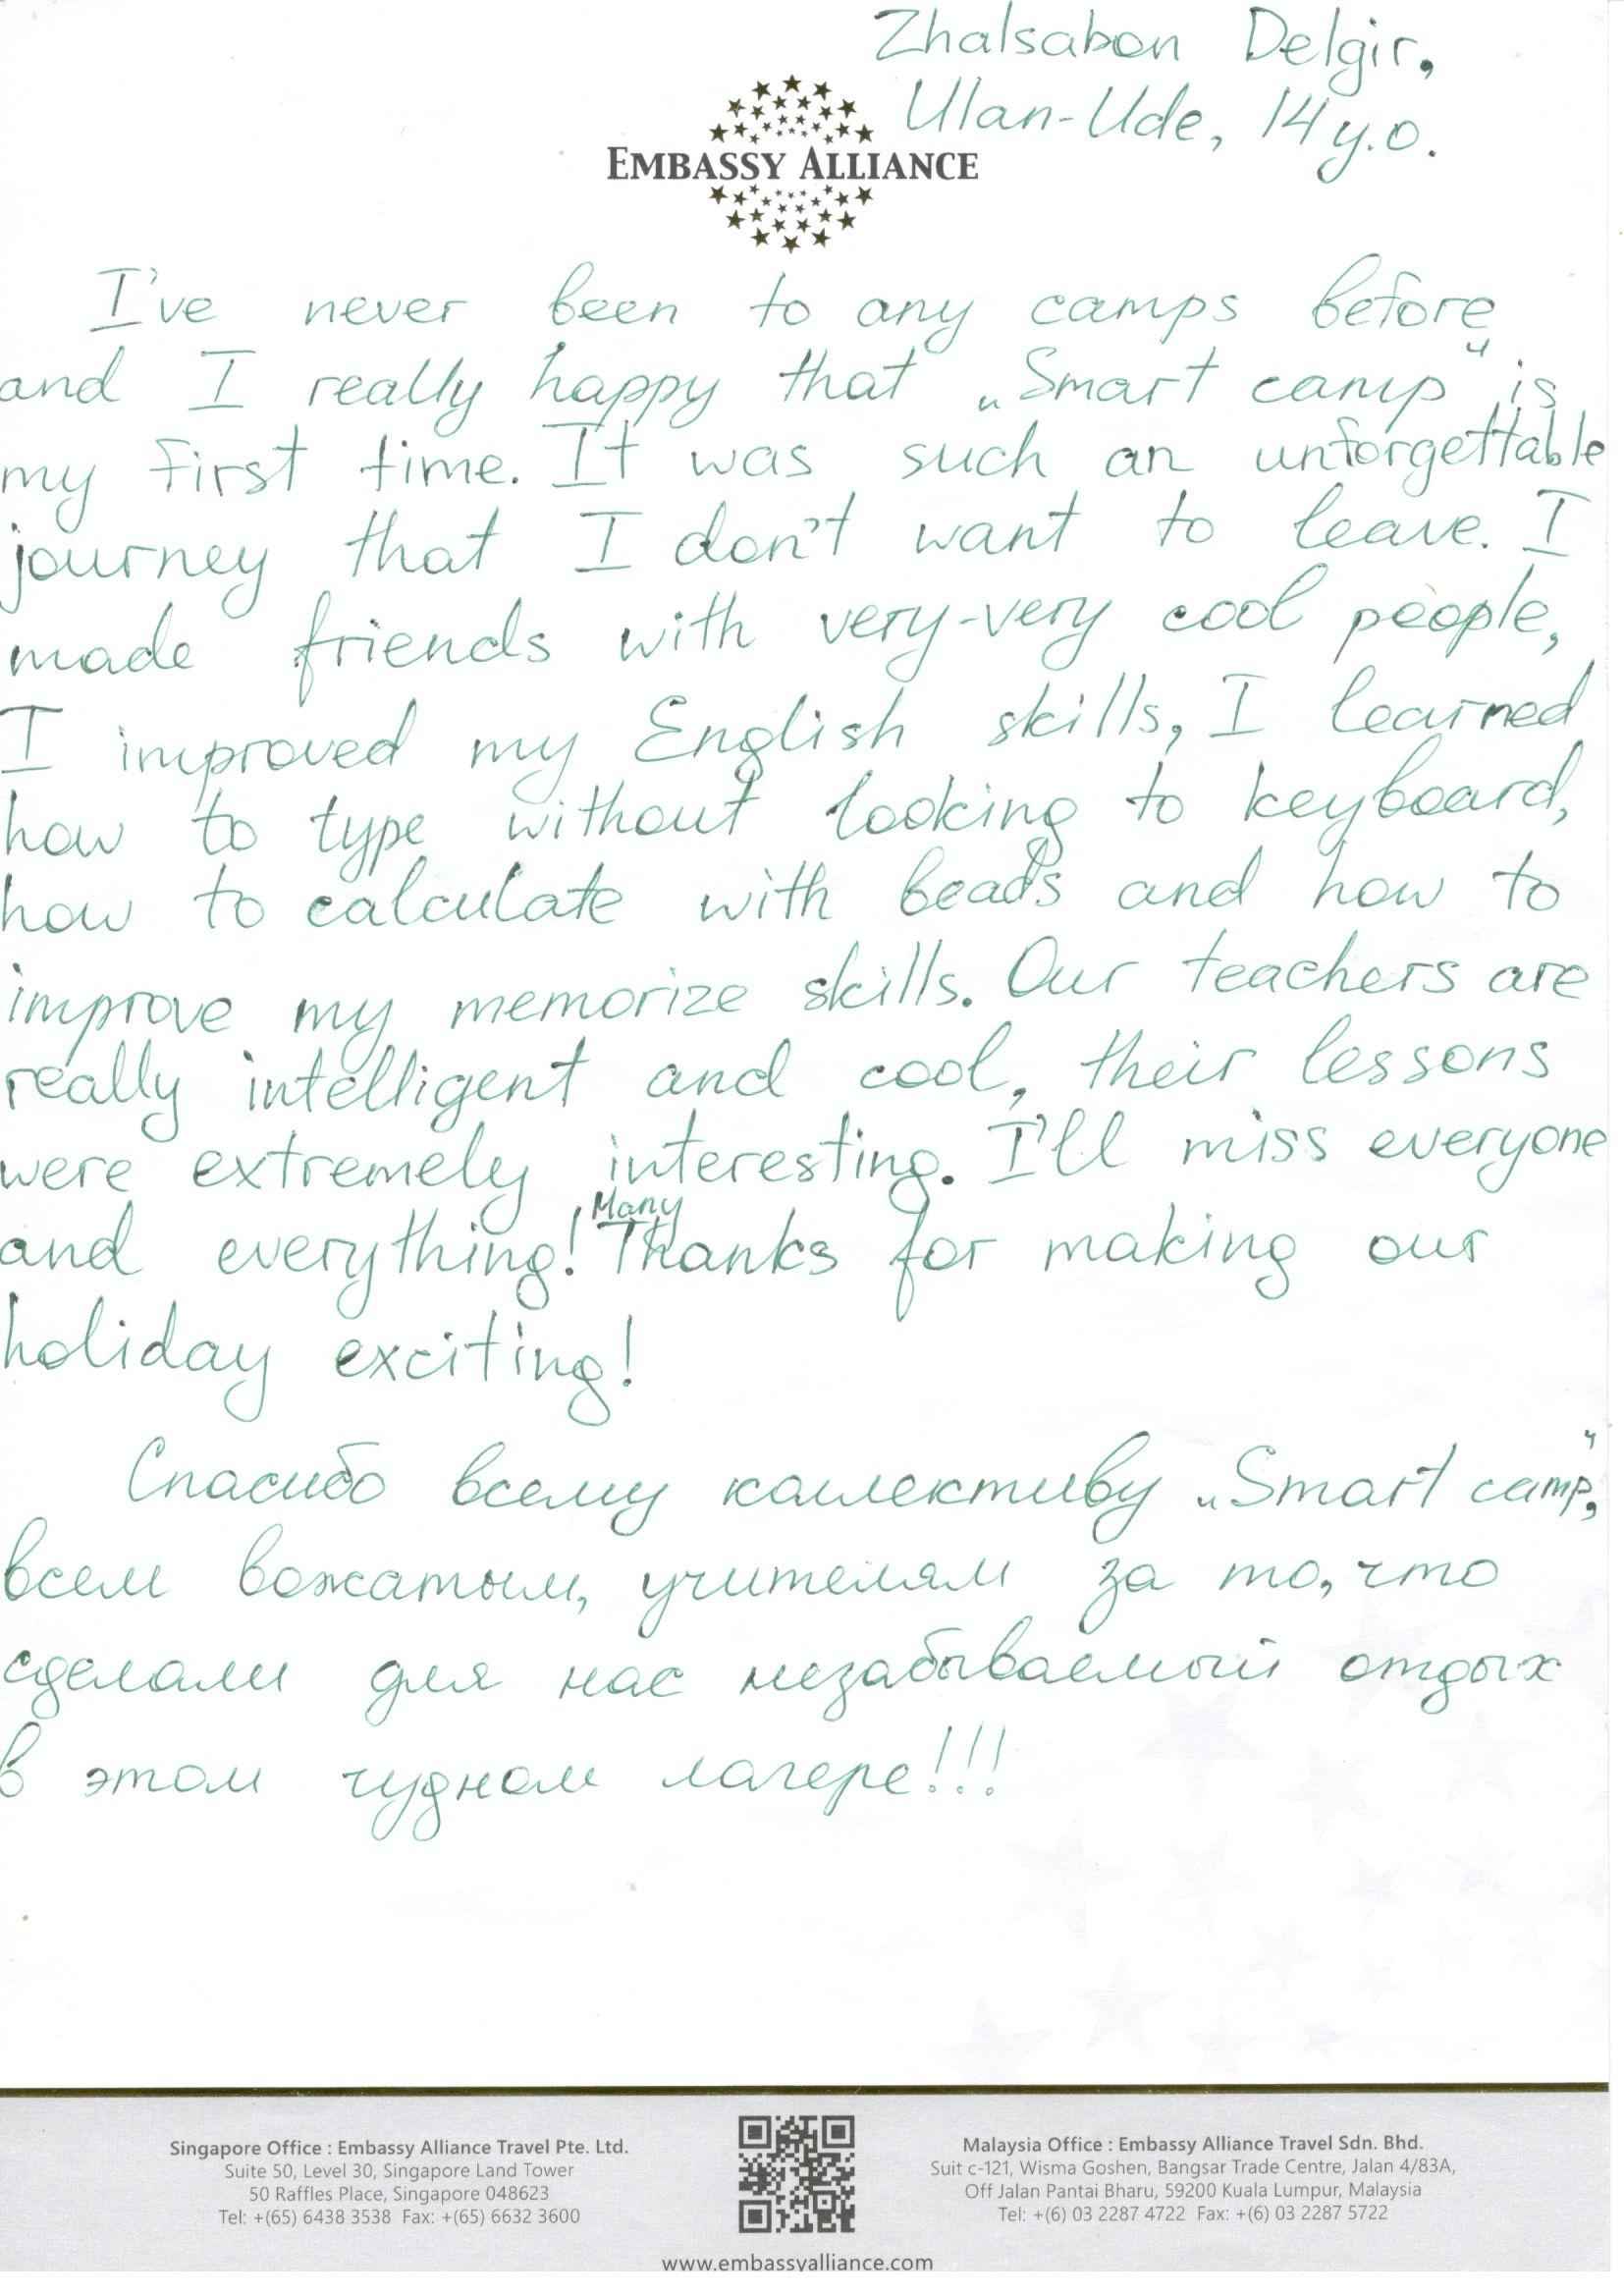 Zhalsabon Delgir,
Ulan-Ude, 14 y.o.
EMBASSY ALLIANCE
I've never been to any camps before
and I really happy that „Smart camp“ is
my first time. It was such an unforgettable
journey that I don't want to leave. I
made friends with very-very cool people,
I improved my English skills, I learned
how to type without looking to keyboard,
how to calculate with beads and how to
improve my memorize skills. Our teachers are
really intelligent and cool, their lessons
were extremely interesting. I'll miss everyone
and everything! Many Thanks for making our
holiday exciting!
Спасибо всему коллективу „Smart camp“,
всем вожатым, учителям за то, что
сделали для нас незабываемый отдых
в этом чудном лагере!!!
Singapore Office : Embassy Alliance Travel Pte. Ltd.
Suite 50, Level 30, Singapore Land Tower
50 Raffles Place, Singapore 048623
Tel: +(65) 6438 3538 Fax: +(65) 6632 3600
Malaysia Office : Embassy Alliance Travel Sdn. Bhd.
Suit c-121, Wisma Goshen, Bangsar Trade Centre, Jalan 4/83A,
Off Jalan Pantai Bharu, 59200 Kuala Lumpur, Malaysia
Tel: +(6) 03 2287 4722 Fax: +(6) 03 2287 5722
www.embassyalliance.com